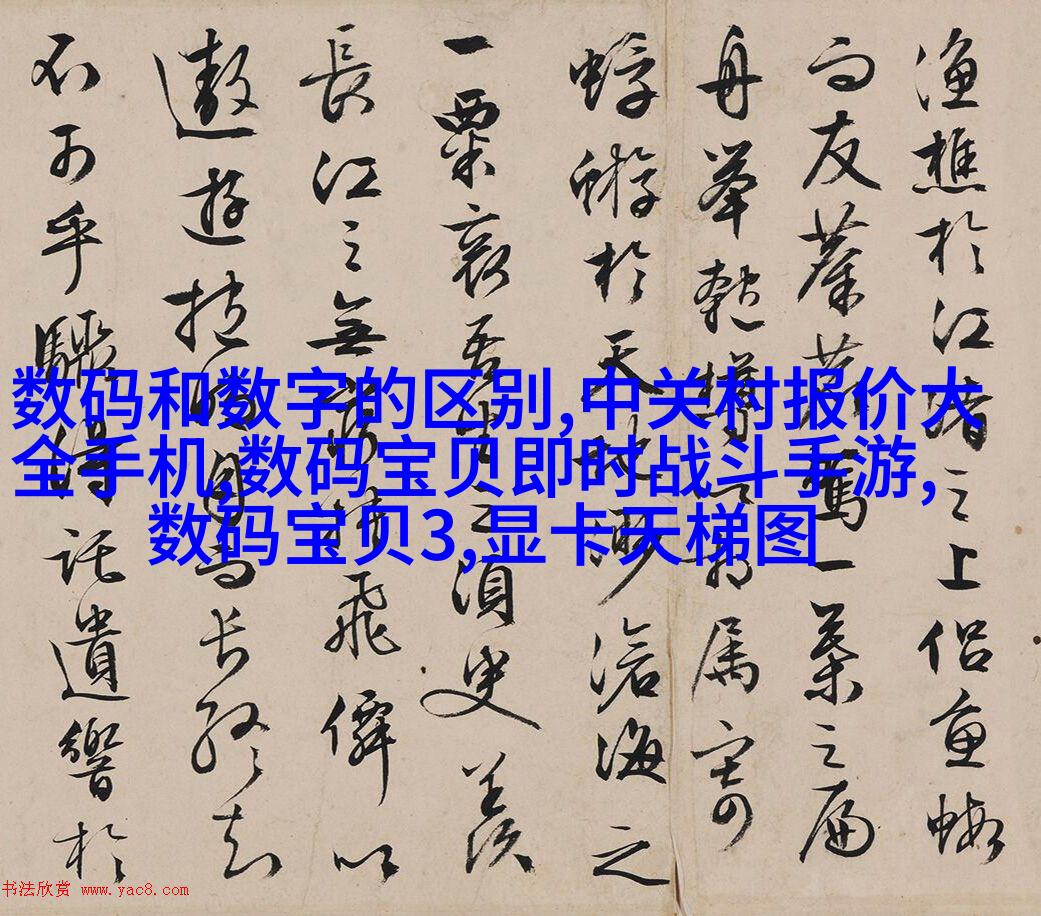 渔樵於江渚之上侣鱼蝦
而友麋鹿駕一葉之扁
舟舉匏樽以相属寄
蜉蝣於天地渺滄海之
一粟哀吾生之須臾羨
長江之無窮挾飛僊以
遨遊抱明月而长終知
不可乎驟得託遺響於
数码和数字的区别,中关村报价大
全手机,数码宝贝即时战斗手游,
数码宝贝3,显卡天梯图
书法欣赏 www.yac8.com